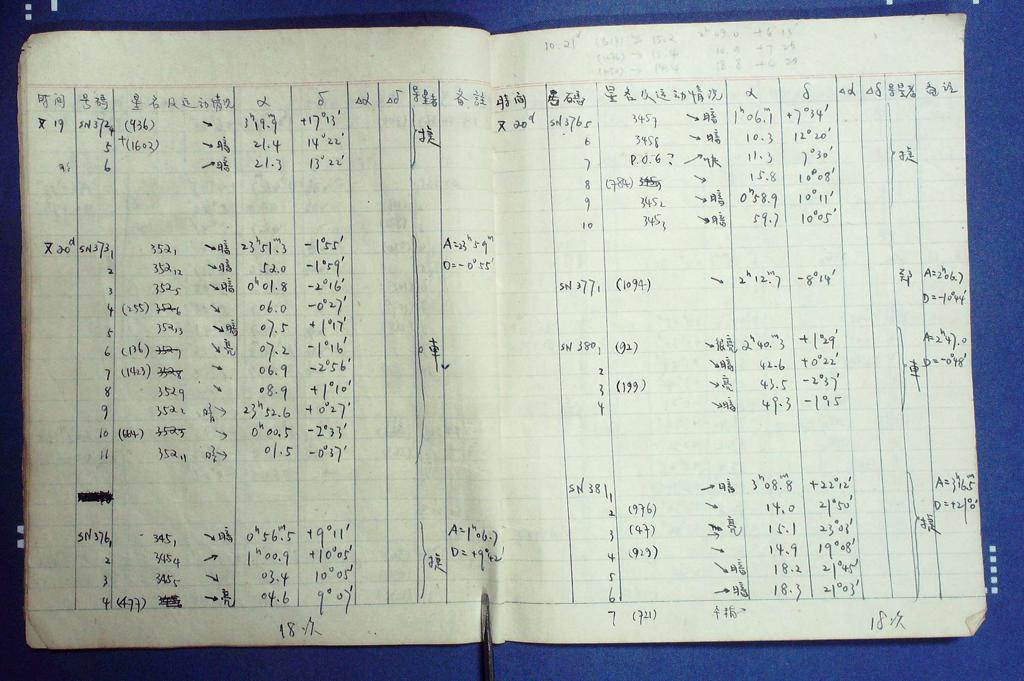 时间 号码 星名及运动情况 α δ Δα Δδ 寻星者 备註
又19 SN372₄ (936) ↘ 3ʰ19.ᵐ9 +17°13′
5 +(1602) ↘暗 21.4 14°22′
6 ↘暗 21.3 13°22′
又20ᵈ SN373₁ 352₁ ↘暗 23ʰ51.ᵐ3 -1°55′ A=23ʰ59ᵐ
2 352₁₂ ↘暗 52.0 -1°59′ D=-0°55′
3 352₅ ↘暗 0ʰ01.8 -2°16′
4 (255) ↘ 06.0 -0°27′
5 352₁₃ ↘暗 07.5 +1°17′
6 (136) ↘亮 07.2 -1°16′
7 (1423) ↘ 06.9 -2°56′
8 352₉ ↘ 08.9 +1°10′
9 352₂ 23ʰ52.6 +0°27′
10 ↘ 0ʰ00.5 -2°33′
11 352₁₁ 01.5 -0°37′
SN376₁ 345₁ ↘暗 0ʰ56.ᵐ5 +9°11′ A=1ʰ06.7
2 345₄ ↗ 1ʰ00.9 +10°05′ D=+9°42′
3 345₅ ↘ 03.4 10°05′
4 (477) ↘亮 04.6 9°07′
18次
10.21ᵈ
时间 号码 星名及运动情况 α δ Δα Δδ 寻星者 备註
又20ᵈ SN376₅ 345₇ ↘暗 1ʰ06.ᵐ1 +7°34′
6 345₈ ↘暗 10.3 12°20′
7 P.O.6? ↗快 11.3 7°30′
8 (784) ↘ 15.8 10°08′
9 345₂ ↘暗 0ʰ58.9 10°11′
10 345₃ ↘暗 59.7 10°05′
SN377₁ (1094) ↘ 2ʰ12.ᵐ7 -8°14′ A=2ʰ06.7
D=-10°44′
SN380₁ (92) ↘很亮 2ʰ40.ᵐ3 +1°29′ A=2ʰ47.0
2 ↘暗 42.6 +0°22′ D=-0°48′
3 (199) ↘亮 43.5 -2°37′
4 ↘暗 49.3 -1°15
SN381₁ →暗 3ʰ08.ᵐ8 +22°12′ A=3ʰ16.5
2 (976) → 14.0 21°50′ D=+21°0′
3 (47) 亮 15.1 23°03′
4 (929) ↘ 14.9 19°08′
5 ↘暗 18.2 21°45′
6 →暗 18.3 21°03′
7 (721)
18次